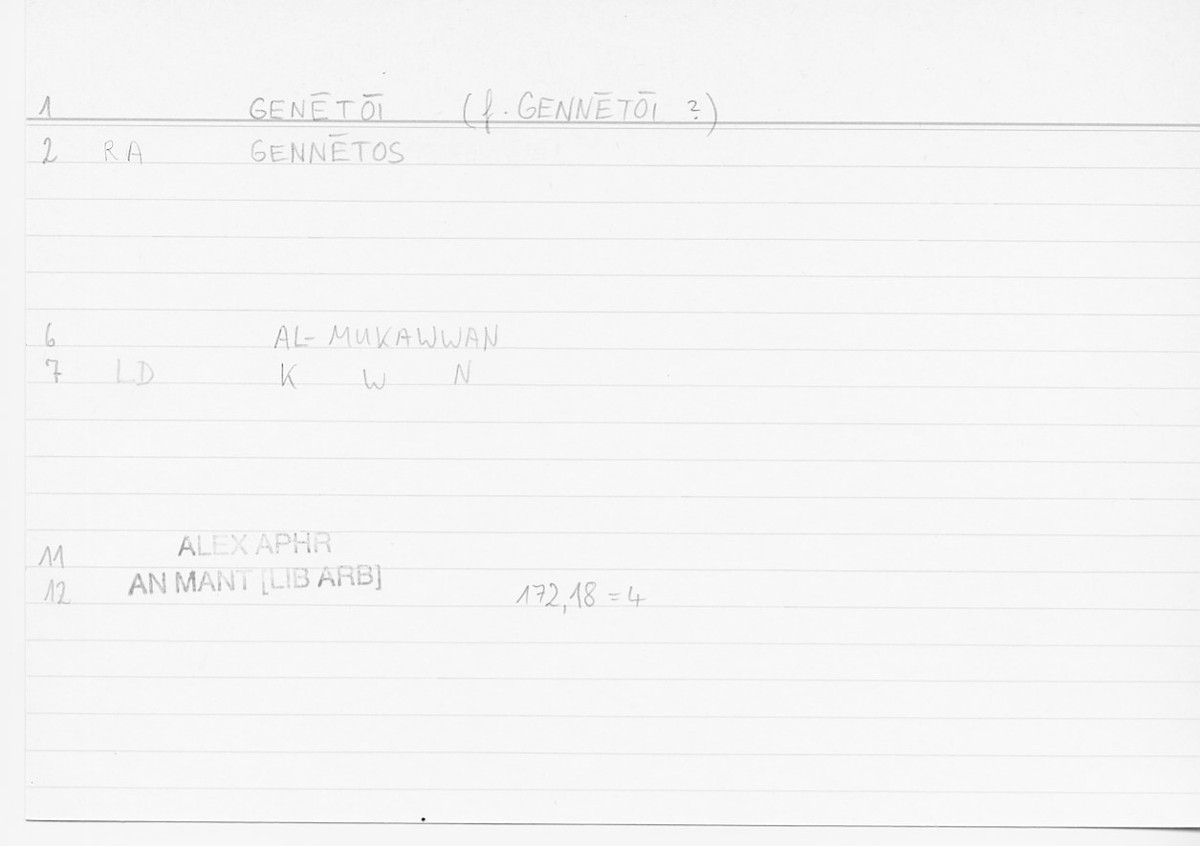 1 GENĒTŌI (f. GENNĒTŌI ?)
2 RA GENNĒTOS
6 AL-MUKAWWAN
7 LD K W N
11 ALEX APHR
12 AN MANT [LIB ARB] 172,18 = 4